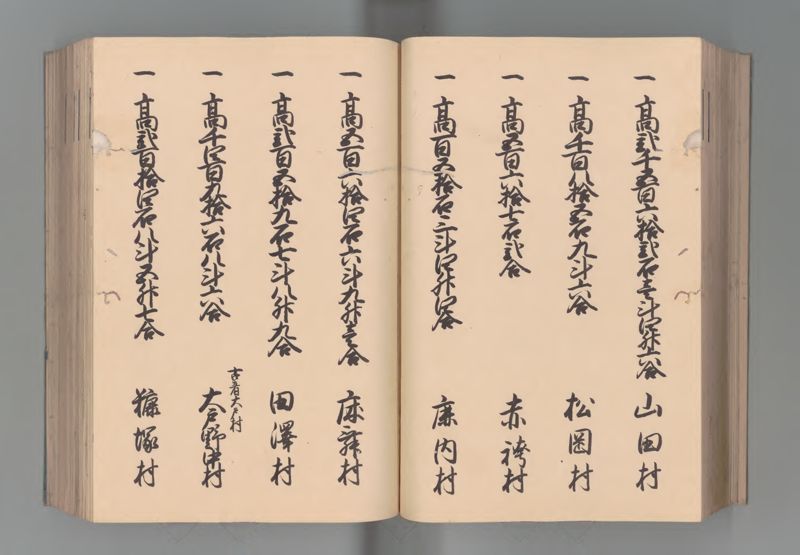 一 髙弐千五百六拾弐石壱斗四升六合 山田村
一 髙千百八拾五石九斗六合 松岡村
一 髙五百六拾七石弐合 赤袴村
一 髙百五拾石三斗四升四合 内村
一 髙五百六拾四石六斗九升壱合 床舞村
一 髙弐百五拾九石七斗八升九合 田澤村
古者大戸村
一 髙千四百九拾六石八斗六合 大戸野村
一 髙弐百拾四石八斗五升七合 糠塚村